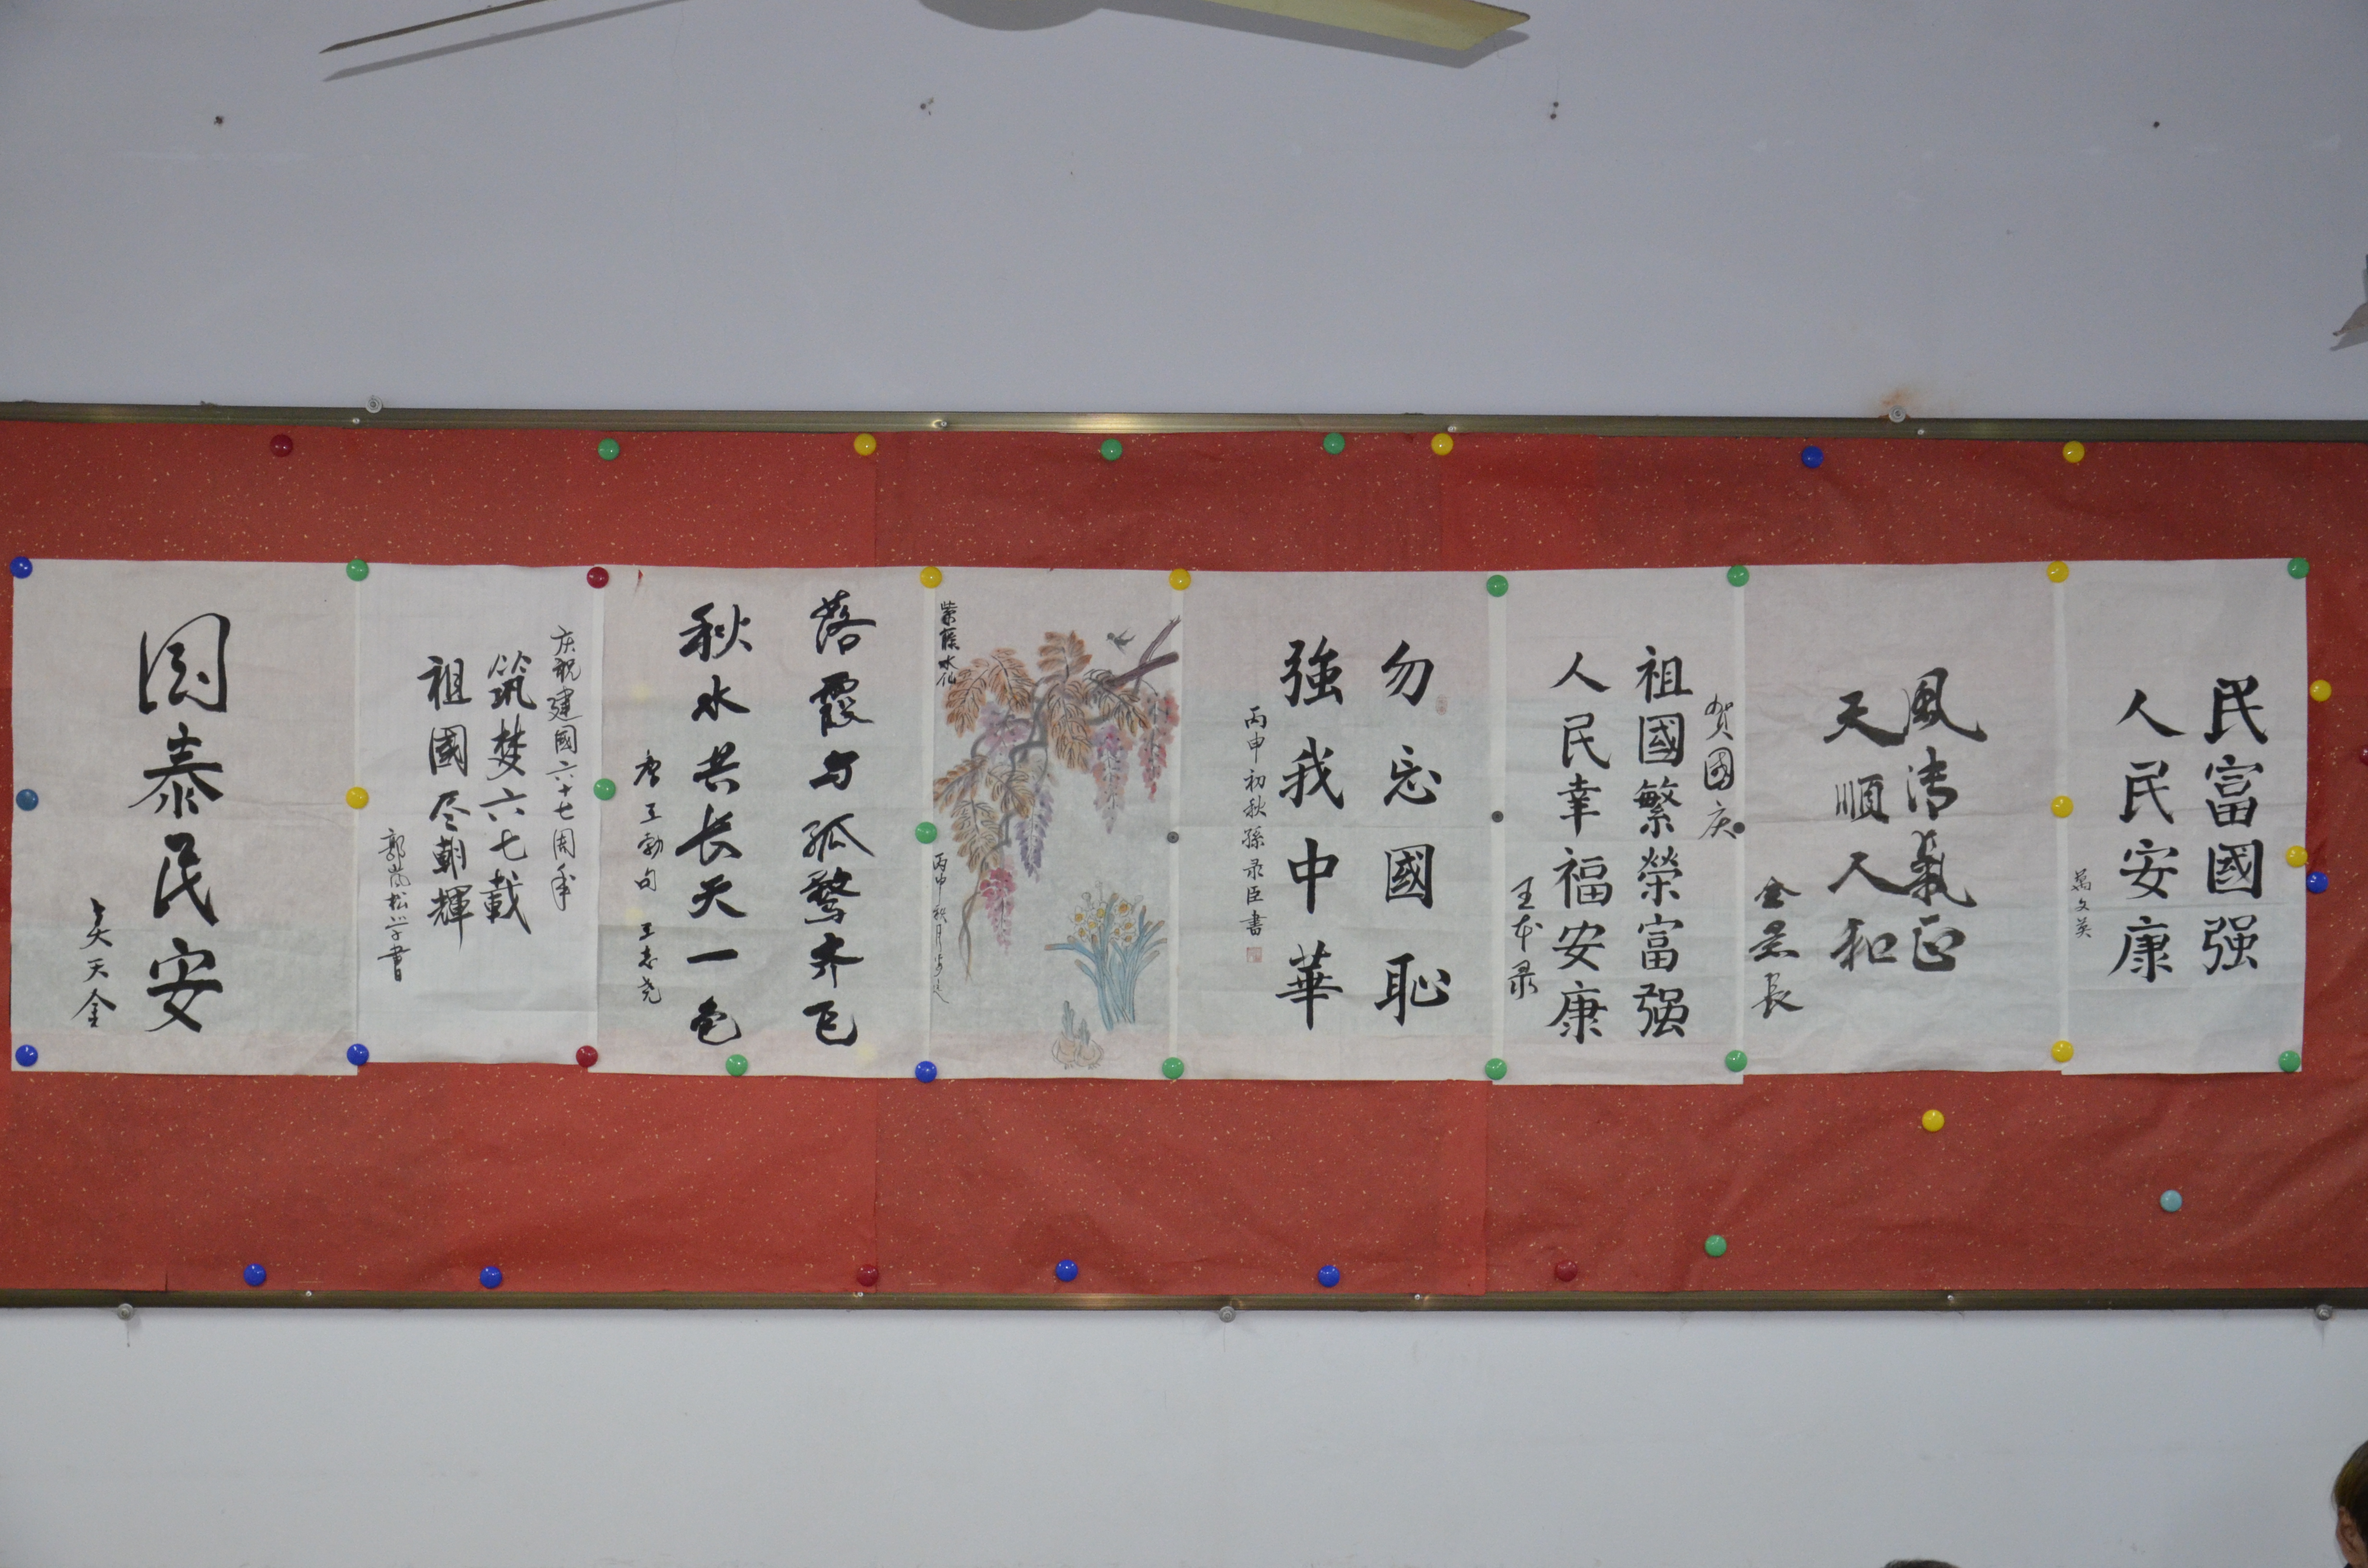 民富國强
人民安康
萬文英
風清氣正
天順人和
金長
贺國庆
祖國繁榮富强
人民幸福安康
王本录
勿忘國恥
強我中華
丙申初秋孫录臣書
紫藤水仙
丙申秋月
落霞与孤鹜齐飞
秋水共长天一色
唐王勃句 王志尧
庆祝建國六十七周年
筑梦六七載
祖國尽朝輝
郭嵐松学書
國泰民安
天金